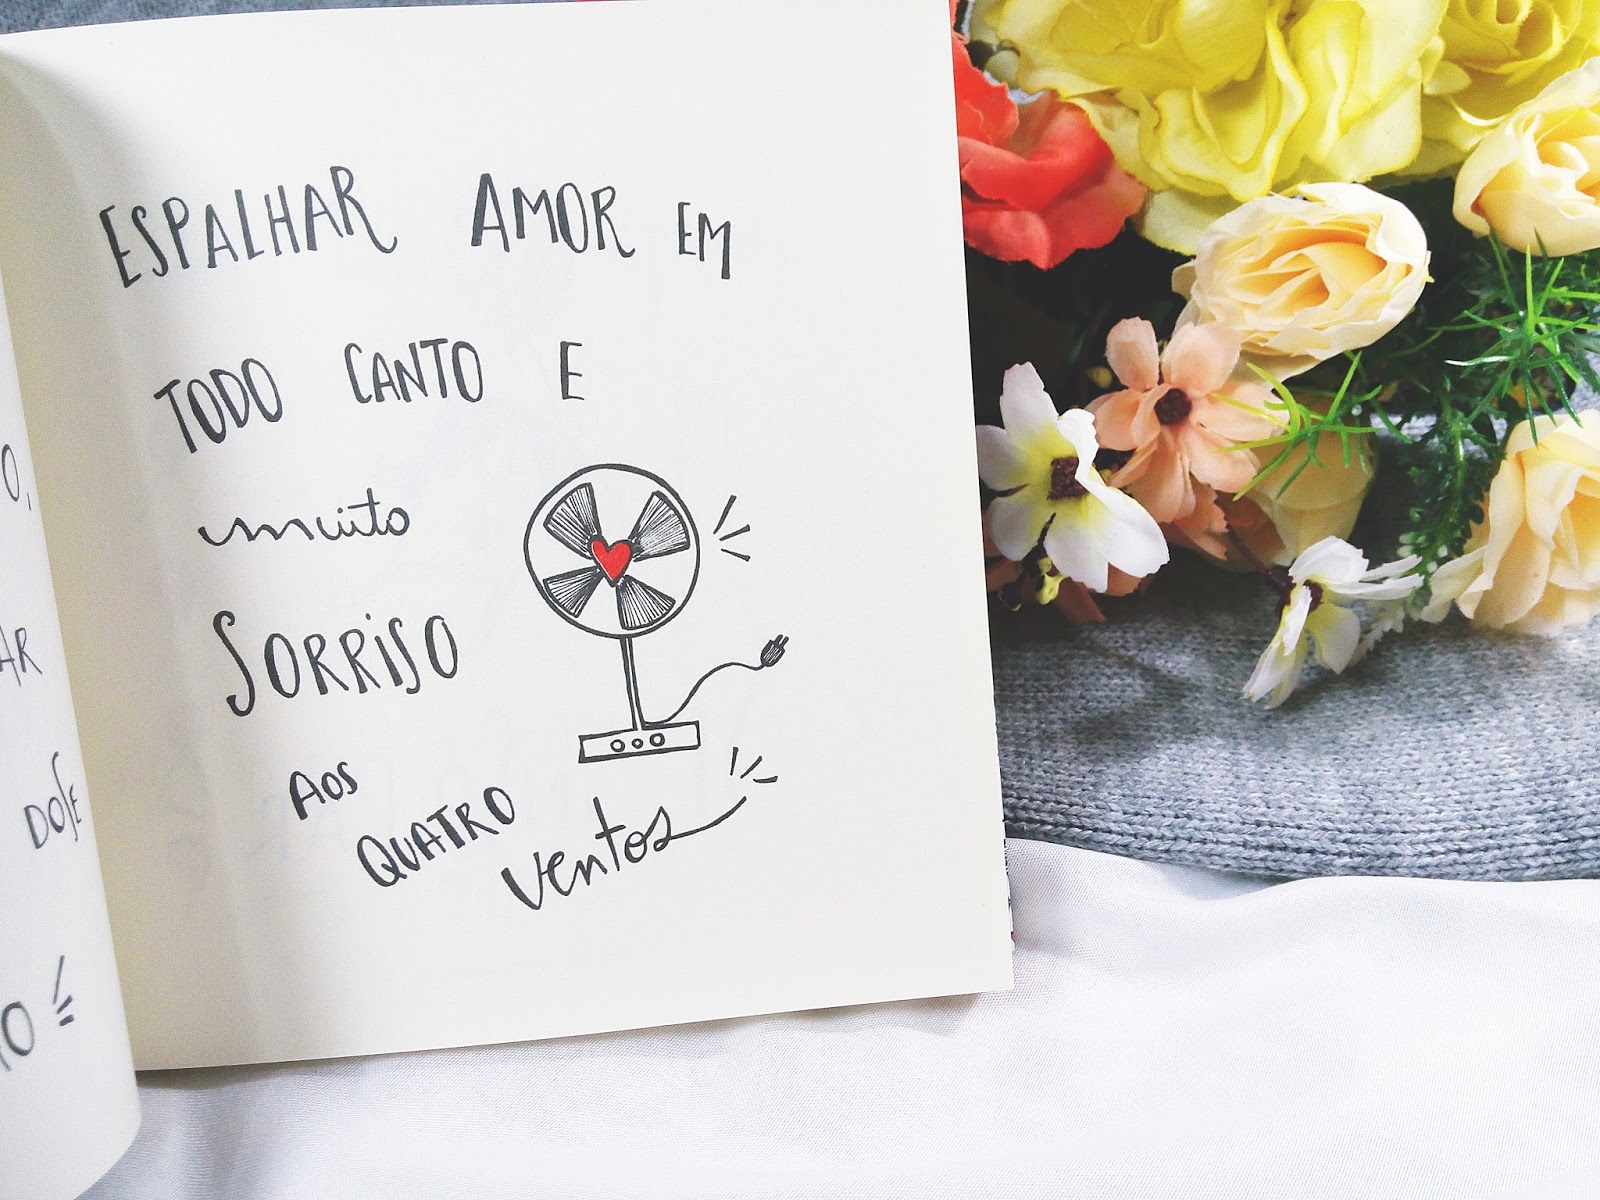 ESPALHAR AMOR EM
TODO CANTO E
muito
SORRISO
AOS
QUATRO
ventos
O,
AR
DOSE